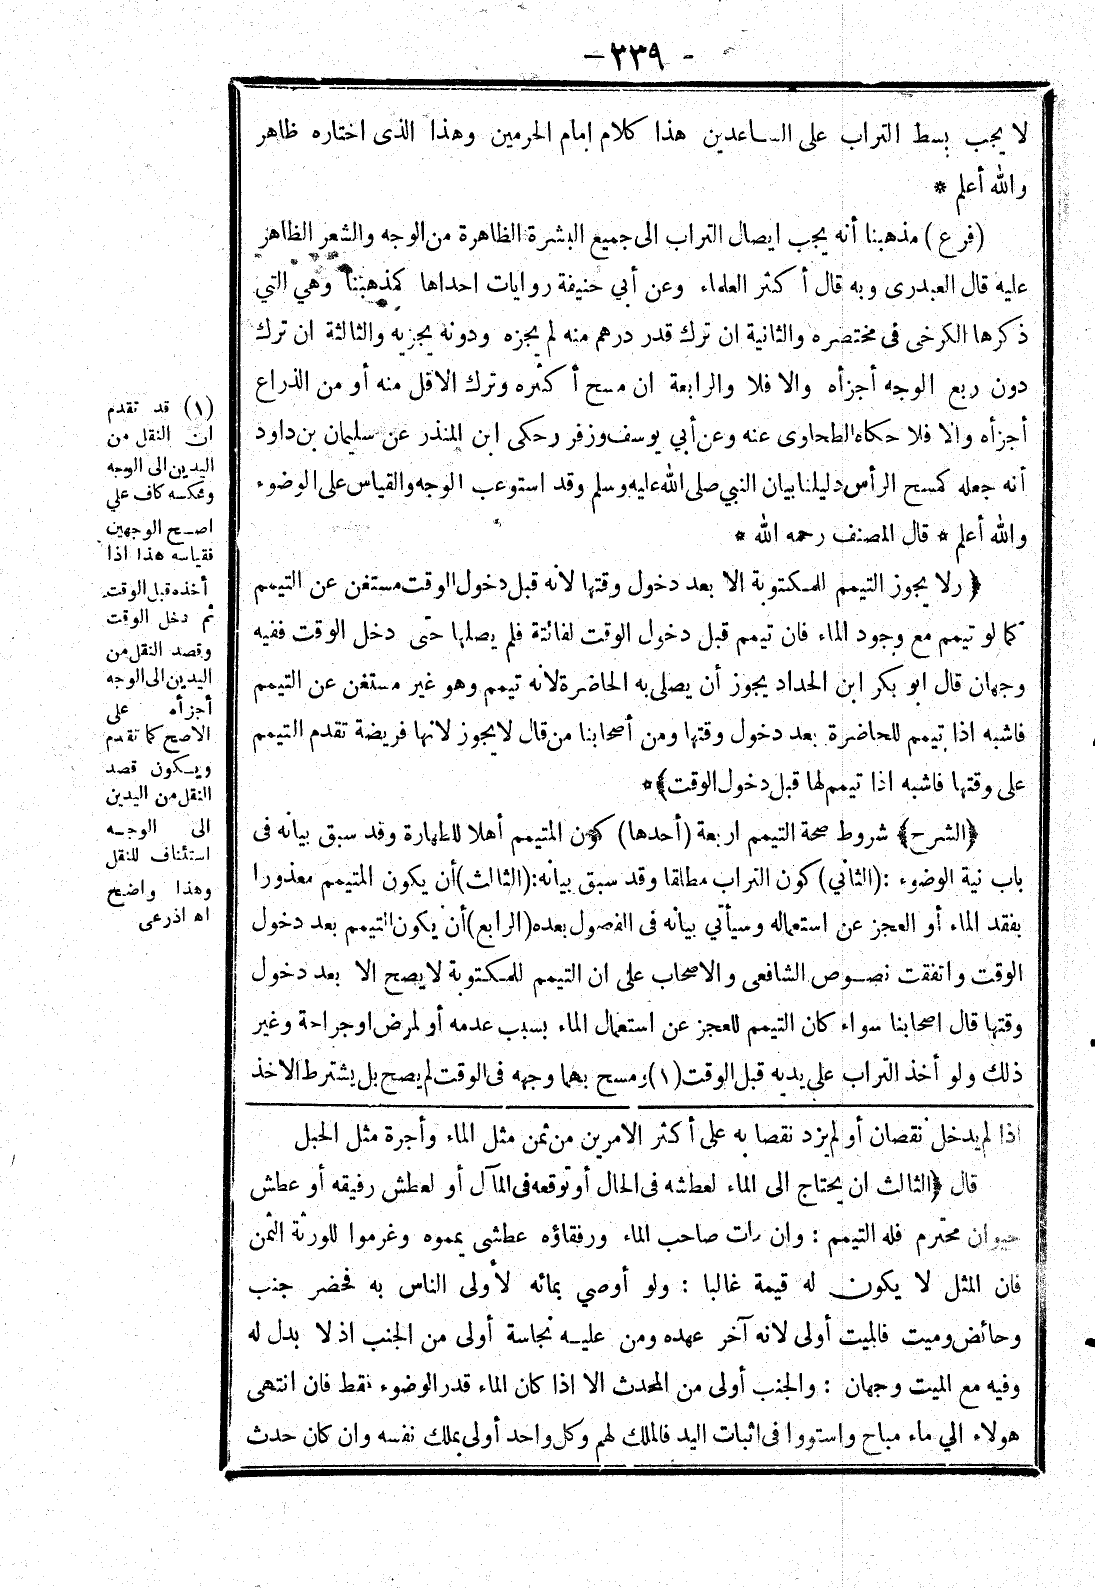 - ٢٣٩ -
لا يجب بسط التراب على الساعدين هذا كلام إمام الحرمين وهذا الذى اختاره ظاهر
والله أعلم *
(فرع) مذهبنا أنه يجب ايصال التراب الى جميع البشرة الظاهرة من الوجه والشعر الظاهر
عليه قال العبدرى وبه قال أكثر العلماء وعن أبي حنيفة روايات احداها كمذهبنا وهي التي
ذكرها الكرخى فى مختصره والثانية ان ترك قدر درهم منه لم يجزه ودونه يجزيه والثالثة ان ترك
دون ربع الوجه أجزأه والا فلا والرابعة ان مسح أكثره وترك الاقل منه أو من الذراع
أجزأه والا فلا حكاه الطحاوى عنه وعن أبي يوسف وزفر وحكى ابن المنذر عن سليمان بن داود
أنه جعله كمسح الرأس دليلنا بيان النبي صلى الله عليه وسلم وقد استوعب الوجه والقياس على الوضوء
والله أعلم * قال المصنف رحمه الله *
﴿ ولا يجوز التيمم للمكتوبة الا بعد دخول وقتها لانه قبل دخول الوقت مستغن عن التيمم
كما لو تيمم مع وجود الماء فان تيمم قبل دخول الوقت لفائتة فلم يصلها حتى دخل الوقت ففيه
وجهان قال ابو بكر ابن الحداد يجوز أن يصلى به الحاضرة لانه تيمم وهو غير مستغن عن التيمم
فاشبه اذا تيمم للحاضرة بعد دخول وقتها ومن أصحابنا من قال لا يجوز لانها فريضة تقدم التيمم
على وقتها فاشبه اذا تيمم لها قبل دخول الوقت ﴾ *
﴿ الشرح ﴾ شروط صحة التيمم اربعة (أحدها) كون المتيمم أهلا للطهارة وقد سبق بيانه فى
باب نية الوضوء : (الثاني) كون التراب مطلقا وقد سبق بيانه: (الثالث) أن يكون المتيمم معذورا
بفقد الماء أو العجز عن استعماله وسيأتي بيانه فى الفصول بعده (الرابع) أن يكون التيمم بعد دخول
الوقت واتفقت نصوص الشافعى والاصحاب على ان التيمم للمكتوبة لا يصح الا بعد دخول
وقتها قال اصحابنا سواء كان التيمم للعجز عن استعمال الماء بسبب عدمه أو لمرض او جراحة وغير
ذلك ولو أخذ التراب على يديه قبل الوقت (١) ومسح بهما وجهه فى الوقت لم يصح بل يشترط الاخذ
اذا لم يدخل نقصان أو لم يزد نقصا به على أكثر الامرين من ثمن مثل الماء وأجرة مثل الحبل
قال ﴿ الثالث ان يحتاج الى الماء لعطشه فى الحال أو توقعه فى المآل أو لعطش رفيقه أو عطش
حيوان محترم فله التيمم : وان مات صاحب الماء ورفقاؤه عطشى يمموه وغرموا للورثة الثمن
فان المثل لا يكون له قيمة غالبا : ولو أوصي بمائه لأولى الناس به فحضر جنب
وحائض وميت فالميت أولى لانه آخر عهده ومن عليه نجاسة أولى من الجنب اذ لا بدل له
وفيه مع الميت وجهان : والجنب أولى من المحدث الا اذا كان الماء قدر الوضوء فقط فان انتهى
هولاء الي ماء مباح واستووا فى اثبات اليد فالملك لهم وكل واحد أولى بملك نفسه وان كان حدث
(١) قد تقدم
ان النقل من
اليدين الى الوجه
وعكسه كاف علي
اصح الوجهين
فقياسه هذا اذا
أخذه قبل الوقت
ثم دخل الوقت
وقصد النقل من
اليدين الى الوجه
أجزأه على
الاصح كما تقدم
ويكون قصد
النقل من اليدين
الى الوجه
استئناف للنقل
وهذا واضح
اه اذرعى